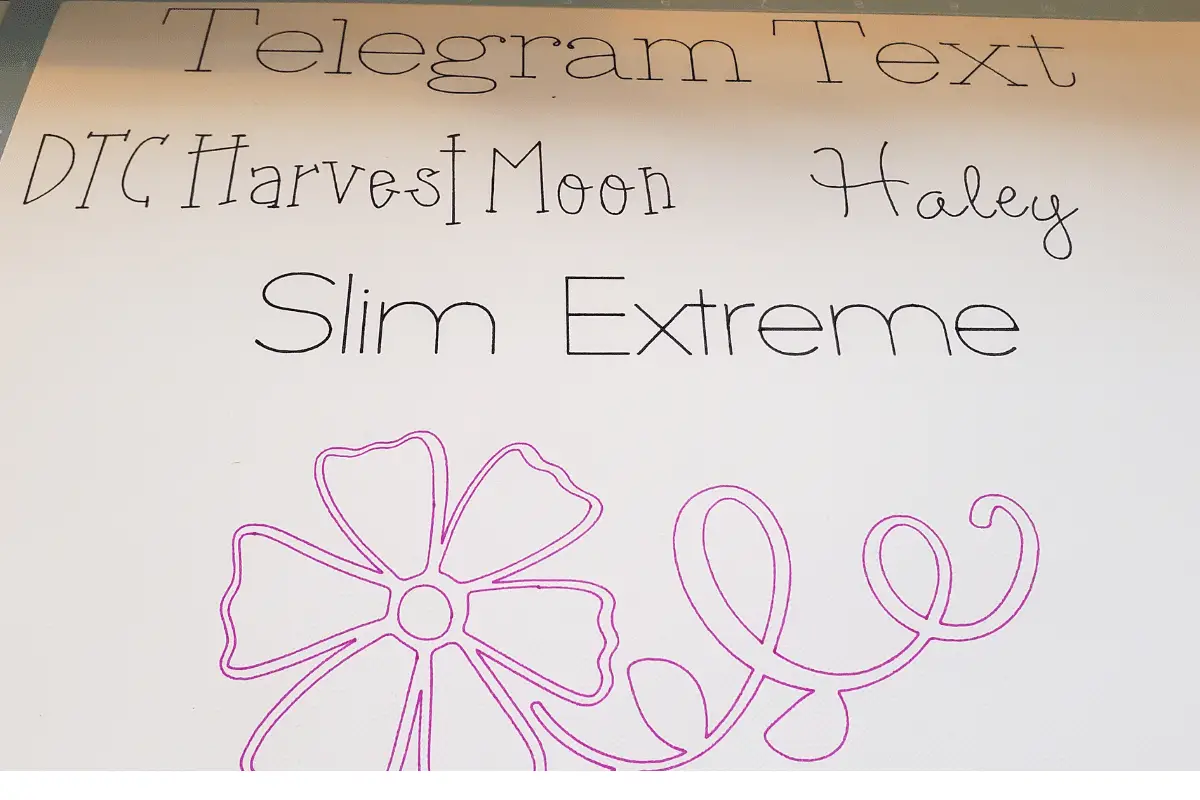 Telegram Text
DTC Harvest Moon Haley
Slim Extreme